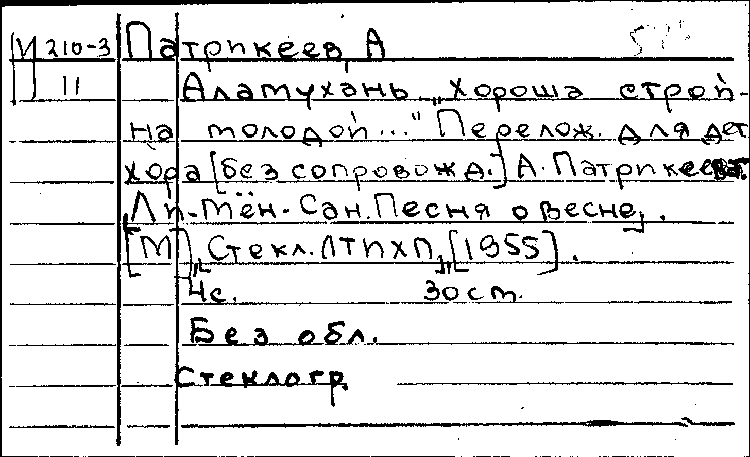 И 210-3 Патрикеев, А
11 Аламухань „Хороша строй-
на молодой..." Перелож. для дет
хора [без сопровожд.] А. Патрикеева.
Ли-Мён-Сан. Песня о весне.
[М], Стекл. ЛТПХП, [1955].
4с. 30 cm.
Без обл.
Стеклогр.